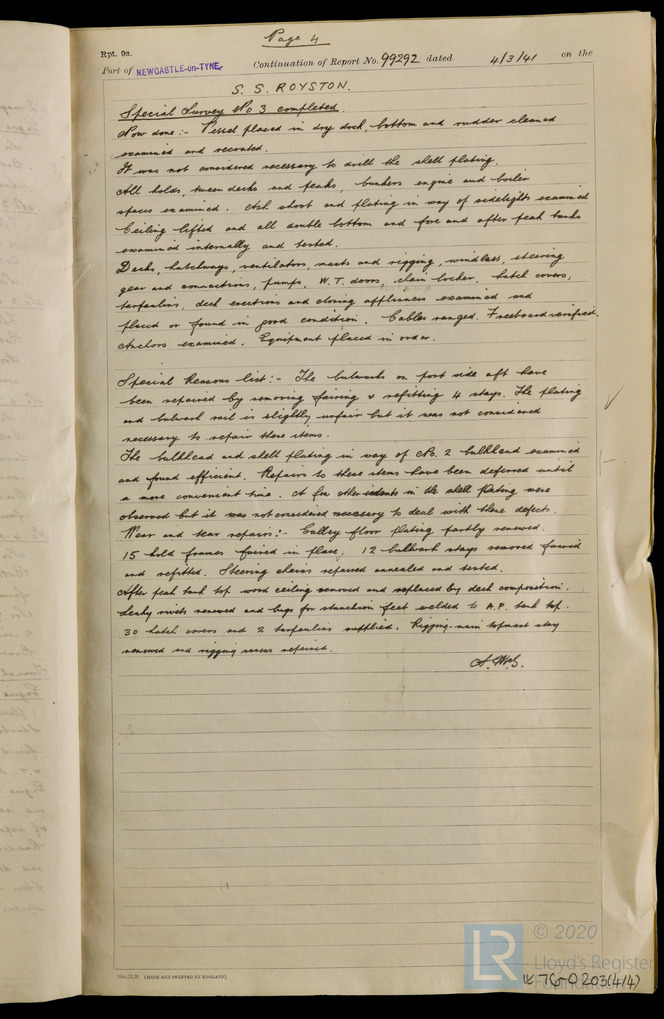 Page 4
Rpt. 9a.
Port of NEWCASTLE-on-TYNE. Continuation of Report No. 99292 dated 4/3/41 on the
S. S. ROYSTON.
Special Survey No 3 completed.
Now done:- Vessel placed in dry dock, bottom and rudder cleaned
examined and recoated.
It was not considered necessary to drill the shell plating.
All holds, tween decks and peaks, bunkers engine and boiler
spaces examined. Ash shoot and plating in way of sidelights examined
Ceiling lifted and all double bottom and fore and after peak tanks
examined internally and tested.
Decks, hatchways, ventilators, masts and rigging, windlass, steering
gear and connections, pumps, W.T. doors, chain locker, hatch covers,
tarpaulins, deck erections and closing appliances examined and
placed or found in good condition. Cables ranged. Freeboard verified.
Anchors examined. Equipment placed in order.
Special Reasons list:- The bulwarks on port side aft have
been repaired by removing fairing & refitting 4 stays. The plating
and bulwark rail is slightly unfair but it was not considered
necessary to repair these items.
The bulkhead and shell plating in way of No. 2 bulkhead examined
and found efficient. Repairs to these items have been deferred until
a more convenient time. A few other indents in the shell plating were
observed but it was not considered necessary to deal with these defects.
Wear and tear repairs:- Galley floor plating partly renewed.
15 hold frames faired in place. 12 bulwark stays removed faired
and refitted. Steering chains repaired annealed and tested.
After peak tank top wood ceiling removed and replaced by deck composition.
Leaky rivets renewed and lugs for stanchion feet welded to A.P. tank top.
30 hatch covers and 2 tarpaulins supplied. Rigging-main topmast stay
renewed and rigging screws repaired.
(MADE AND PRINTED IN ENGLAND)
LR
© 2020
Lloyd's Register
Foundation
0203(4/4)